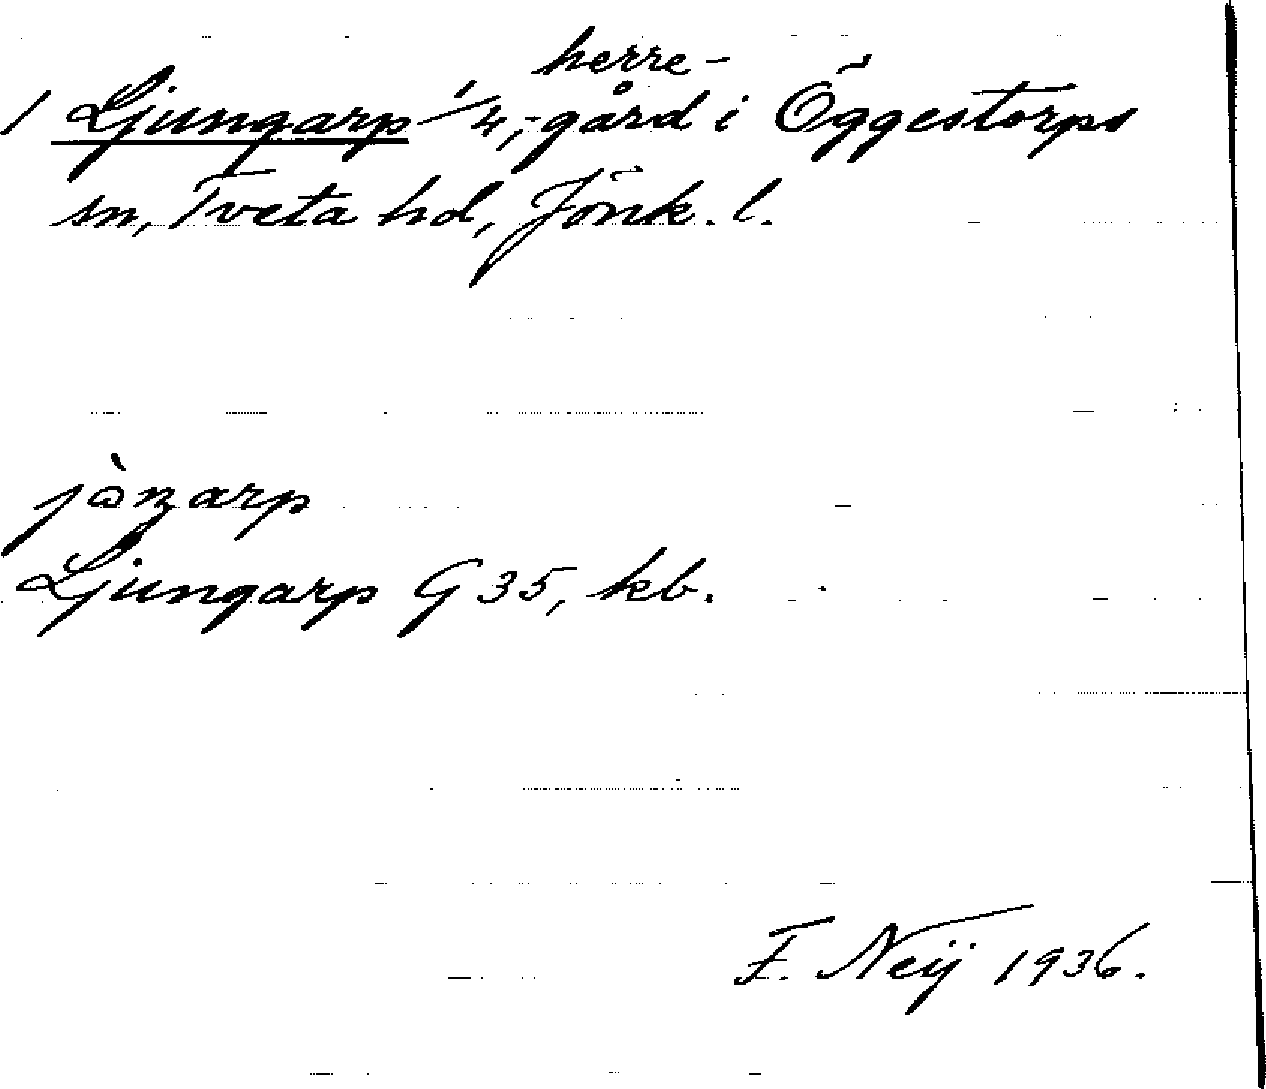 1 Ljungarp 1/4, herre-gård i Öggestorps
sn, Tveta hd, Jönk. l.
jòŋarp
Ljungarp G 35, kb.
F. Neij 1936.